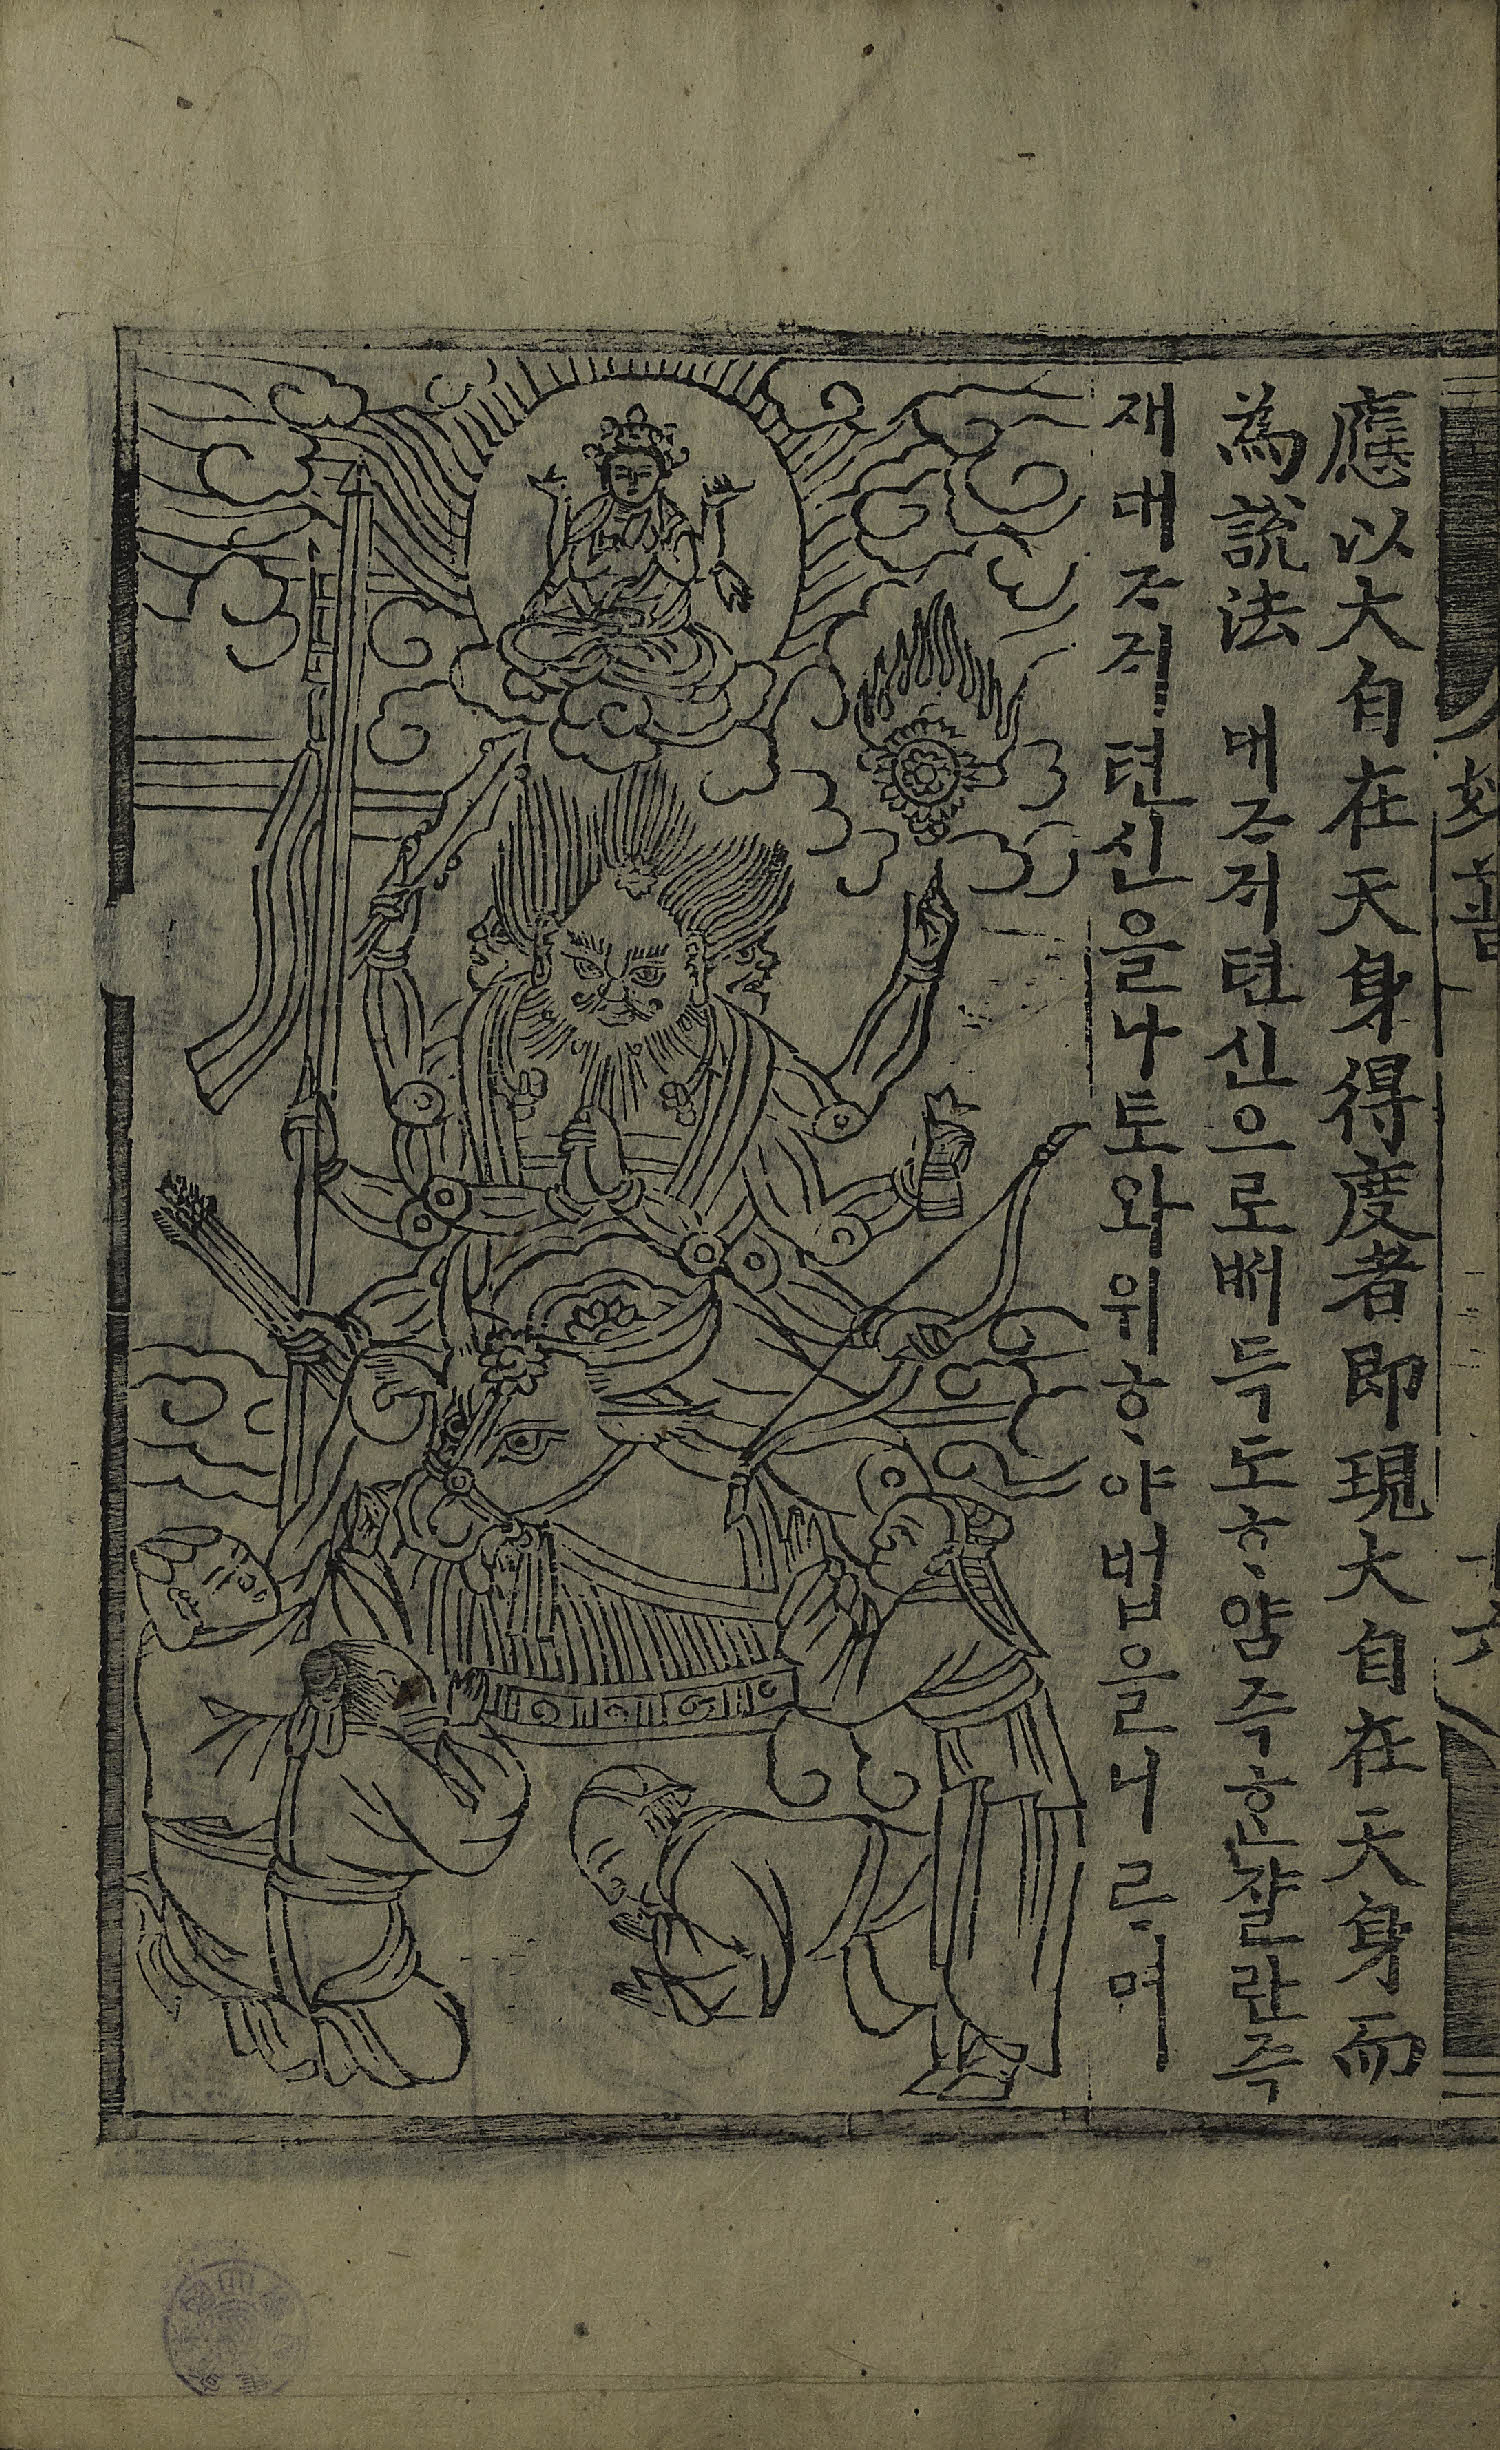 應以大自在天身得度者即現大自在天身而
為說法 대ᄌᆞᄌᆡ텬신으로ᄡᅥ득도ᄒᆞ얌즉ᄒᆞᆫ쟐란즉
재대ᄌᆞᄌᆡ텬신을나토와위ᄒᆞ야법을니ᄅᆞ며